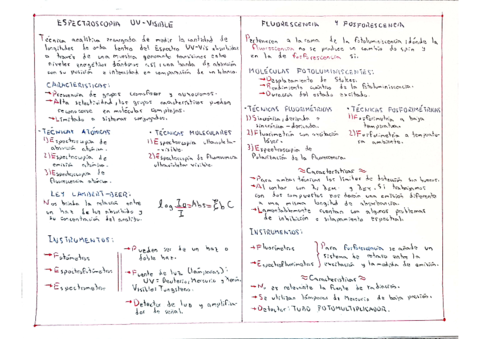 ESPECTROSCOPIA UV-VISIBLE
Técnica analítica encargada de medir la cantidad de
longitudes de onda dentro del Espectro UV-Vis absorbidas
a través de una muestra generando transiciones entre
niveles energéticos dándonos así una banda de absorción
con su posición e intensidad en comparación de un blanco.
CARACTERISTICAS:
→Presencia de grupos cromóforos y auxocromos.
→Alta selectividad, los grupos característicos pueden
reconocerse en moléculas complejas.
→Limitado a sistemas conjugados.
•TÉCNICAS ATÓMICAS
1)Espectroscopia de
absorción atómica.
2)Espectroscopia de
emisión atómica.
3)Espectroscopia de
fluorescencia atómica.
•TÉCNICAS MOLECULARES
1)Espectroscopia ultravioleta-
visible.
2)Espectroscopia de Fluorescencia
ultravioleta visible.
LEY LAMBERT-BEER:
Nos brinda la relación entre
un haz de luz absorbido y
la concentración del analito.
log I₀/I = Abs = Ɛ b C
INSTRUMENTOS:
→Fotómetros
→Espectrofotómetros
→Espectrómetros
→Pueden ser de un haz o
doble haz.
→Fuente de luz (lámparas):
UV= Deuterio, Mercurio y Xenón
Visible= Tungsteno.
→Detector de luz y amplifica-
dor de señal.
FLUORESCENCIA Y FOSFORESCENCIA
Pertenecen a la rama de la fotoluminiscencia; dónde la
fluorescencia no se produce un cambio de spin y
en la de fosforescencia sí.
MOLÉCULAS FOTOLUMINISCENTES:
→Desplazamiento de Stokes.
→Rendimiento cuántico de la fotoluminiscencia.
→Duración del estado excitado.
•TÉCNICAS FLUORIMÉTRICAS
2)Fluorimetría con resolución
3)Espectroscopia de
Polarización de la Fluorescencia.
•TÉCNICAS FOSFORIMÉTRICAS
1)Fosforimetría a baja
temperatura.
2)Fosforimetría a temperatu-
ra ambiente.
≈Características≈
→Para ambas técnicas los límites de detección son buenos.
→Al contar con λem y λex. Si trabajamos
con dos compuestos nos darán una emisión diferente
a una misma longitud de absorbancia.
→Lamentablemente cuentan con algunos problemas
de inhibición o solapamiento espectral.
INSTRUMENTOS:
→Fluorímetros
→Espectrofluorímetros
Para fosforescencia se añade un
sistema de retraso entre la
excitación y la medida de emisión.
≈Características≈
→No es relevante la fuente de radiación.
→Se utilizan lámparas de Mercurio de baja presión.
→Detector: TUBO FOTOMULTIPLICADOR.